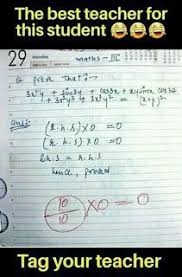 The best teacher for
this student 😂😂😂
29 Monday
maths - III
Q Prove that:-
3x²y + sin3y + cos3x + xy sinx cos3y
+ 3x²y³ + 3x²y² = (x+y)²
Ans:-
(L.h.s) X 0 = 0
(R.h.s) X 0 = 0
lh.s = r.h.s
hence, proved
10/10 X 0 = 0
Tag your teacher